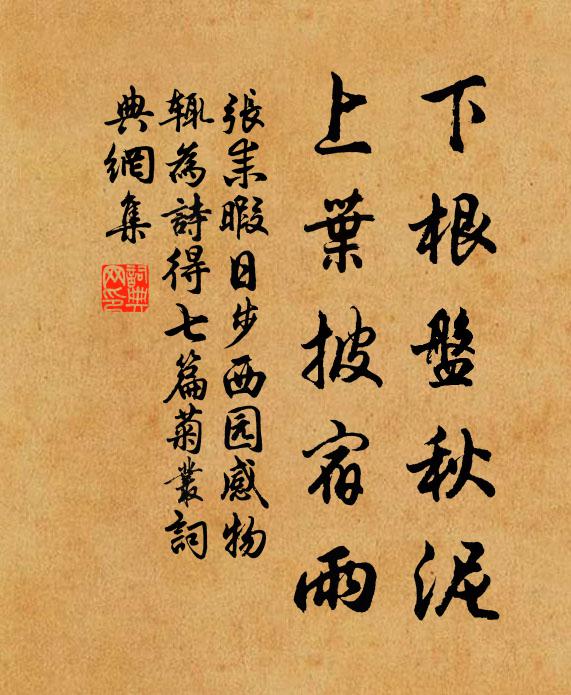 下根盤秋泥
上葉披宿雨
張耒暇日步西园感物
輒為詩得七篇菊叢詞
典網集
詞典網印